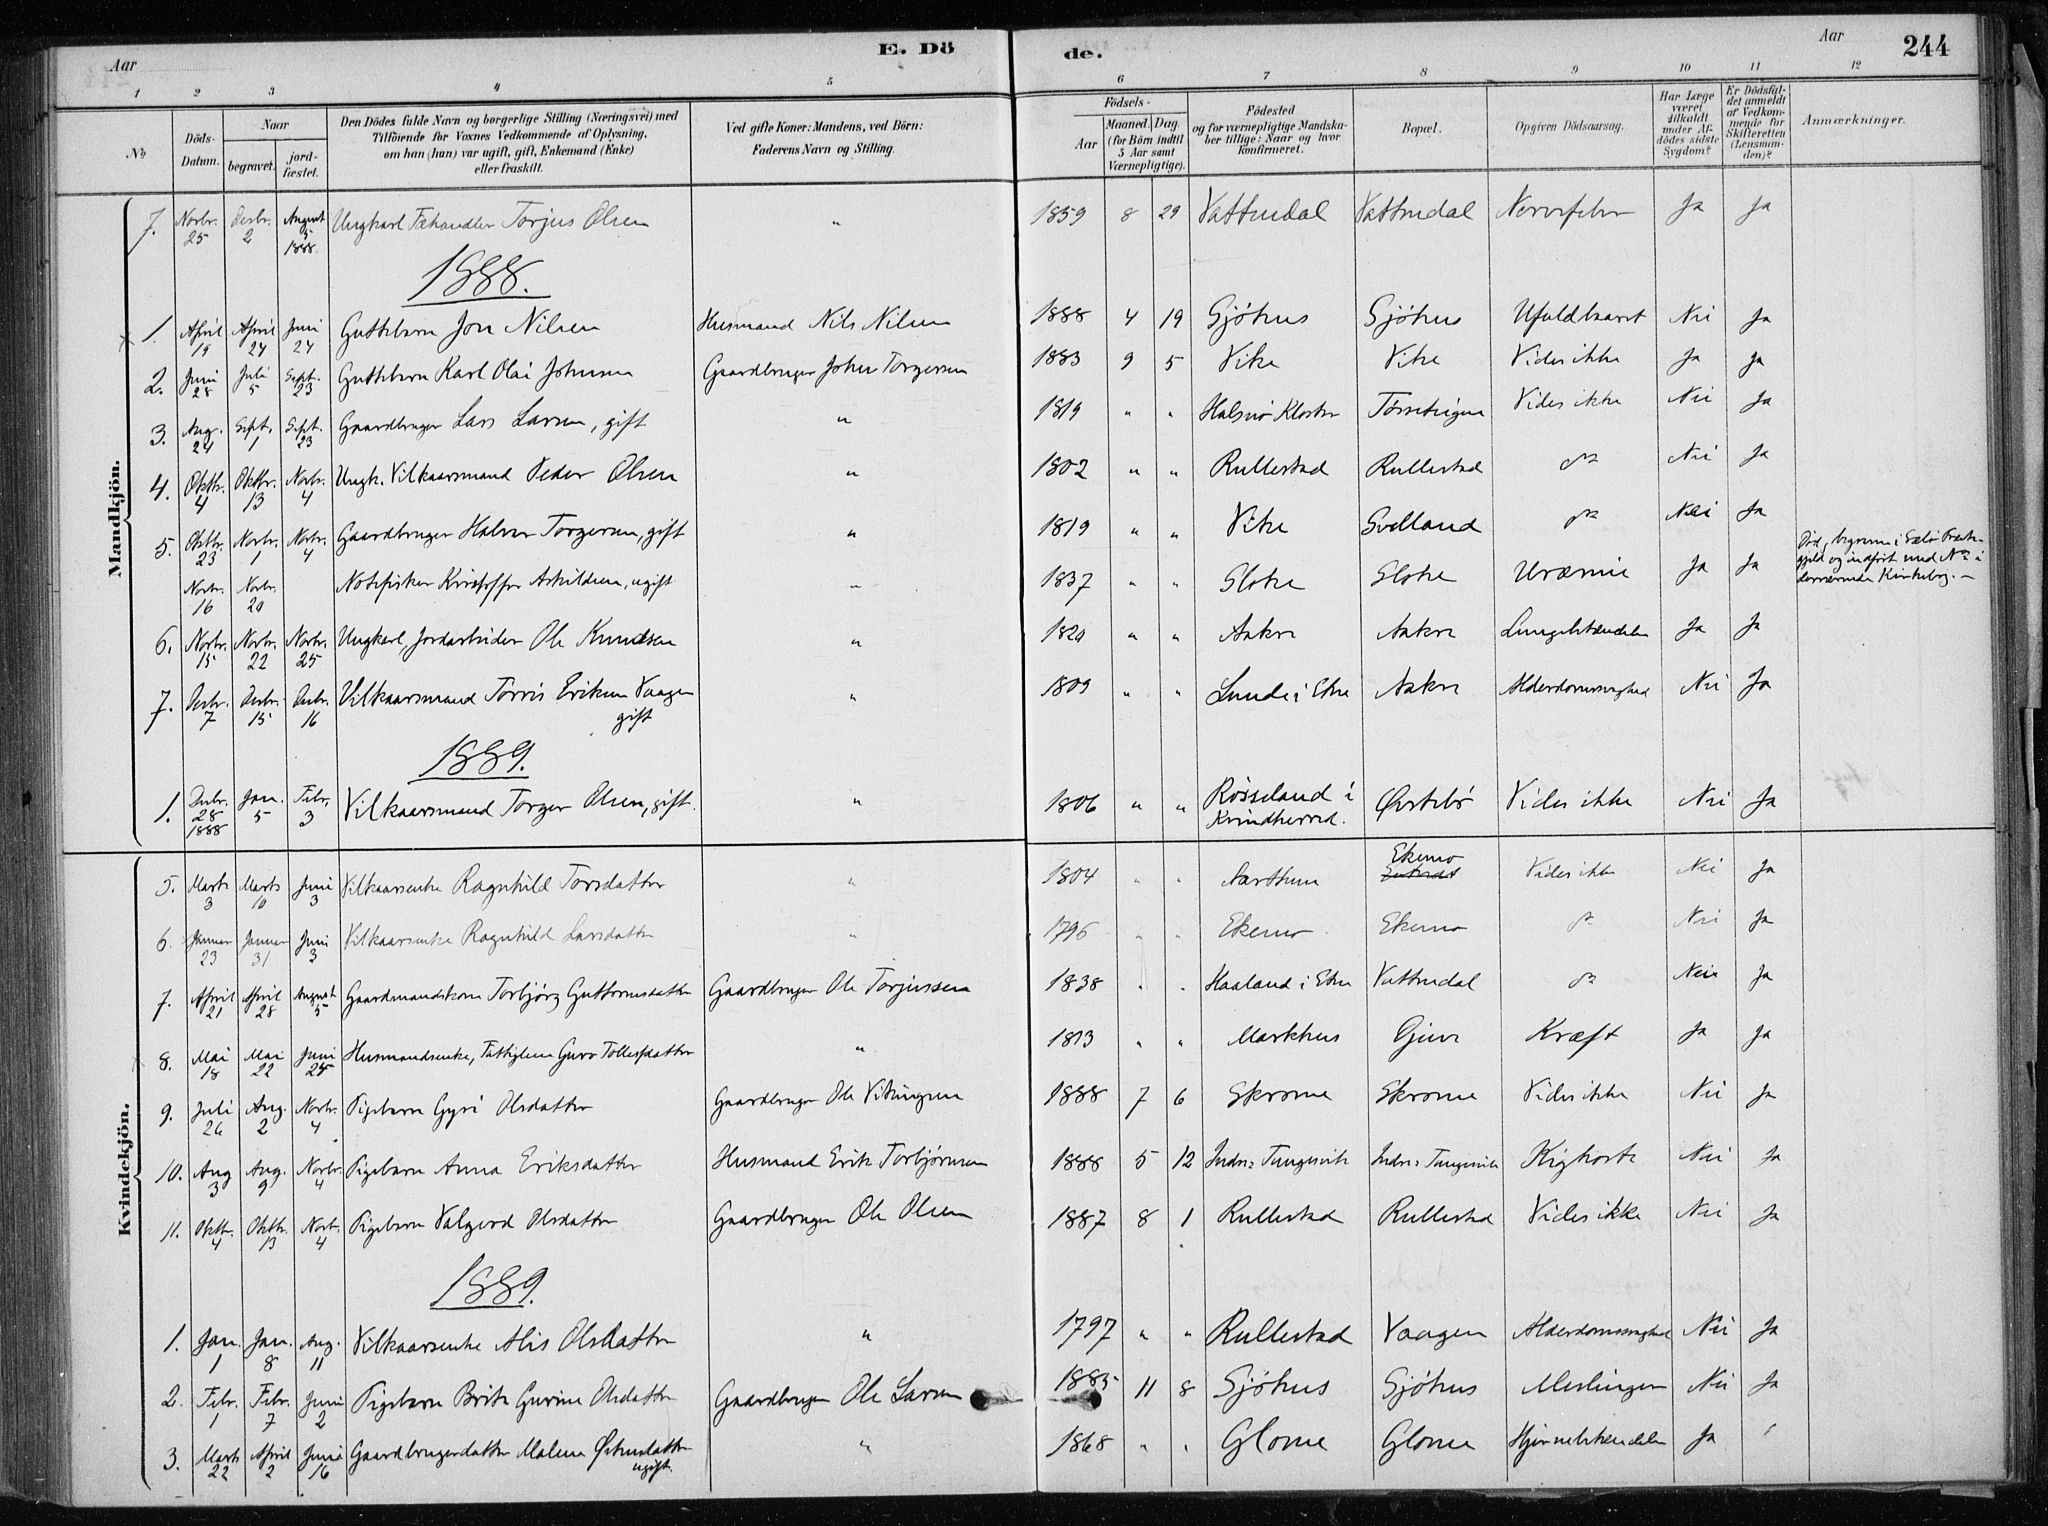 Aar E. Dö de. Aar 244
1 2 3 4 5 6 7 8 9 10 11 12
No
Döds-Datum.
Naar
begravet.
jord-fæstet.
Den Dödes fulde Navn og borgerlige Stilling (Næringsvei) med
Tilföiende for Voxnes Vedkommende af Oplysning,
om han (hun) var ugift, gift, Enkemand (Enke)
eller fraskilt.
Ved gifte Koner: Mandens, ved Börn:
Faderens Navn og Stilling.
Födsels-
Aar
Maaned. Dag.
(for Börn indtil
5 Aar samt
Værnepligtige).
Födested
og for værnepligtige Mandska-
ber tillige: Naar og hvor
konfirmeret.
Bopæl.
Opgiven Dödsaarsag.
Har Læge
været
tilkaldt
under Af-
dödes sidste
Sygdom?
Er Dödsfal-
det anmeldt
af Vedkom-
mende for
Skifteretten
(Lensman-
den)?
Anmærkninger.
Mandkjön.
7. Novbr. 25 Decbr. 2 August 5 1888. Ungkarl Fæhandler Torjus Olsen " 1859 8 29 Vattnedal Vattnedal Nervefeber Ja Ja
1888.
1. April 19 April 24 Juni 24 Guttebarn Jon Nilsen Husmand Nils Nilsen 1888 4 19 Sjöhus Sjöhus Ufuldbaaret Nei Ja
2. Juni 28 Juli 5 Sept. 23 Guttebarn Karl Olai Johnsen Gaardbruger John Torgersen 1883 9 5 Vike Vike Vides ikke Ja Ja
3. Aug. 24 Sept. 1 Sept. 23 Gaardbruger Lars Larsen, gift " 1819 " " Halsnö Kloster Vides ikke Nei Ja
4. Oktbr. 4 Oktbr. 13 Novbr. 4 Ungk. Vilkaarsmand Peder Olsen " 1802 " " Rullestad Rullestad do Nei Ja
5. Oktbr. 23 Novbr. 1 Novbr. 4 Gaardbruger Halvor Torgersen, gift " 1819 " " Vike Svelland do Nei Ja
Novbr. 16 Novbr. 20 Notefisker Kristoffer Askildsen, ugift " 1837 " " Sloke Sloke Uræmie Ja Ja Död, begraven i Fræste-
gjeld og indfört med No i
derværende Kirkebog. —
6. Novbr. 15 Novbr. 22 Novbr. 25 Ungkarl, Jordarbeider Ole Knudsen " 1820 " " Aakre Aakre Lungebetændelse Ja Ja
7. Decbr. 7 Decbr. 15 Decbr. 16 Vilkaarsmand Torris Eriksen Vaagen " 1809 " " Lunde i Etne Aakre Alderdomssvaghed Nei Ja
gift
1889.
1. Decbr. 28 1888 Jan. 5 Febr. 3 Vilkaarsmand Torger Olsen, gift. " 1806 " " Rösseland i
Kvindherred. Östebö Vides ikke Nei Ja
Kvindekjön.
5. Marts 3 Marts 10 Juni 3 Vilkaarsenke Ragnhild Torsdatter " 1804 " " Aarthun Ekemo Vides ikke Nei Ja
6. Januar 23 Januar 31 Juni 3 Vilkaarsenke Ragnhild Larsdatter " 1796 " " Ekemo Ekemo do Nei Ja
7. April 21 April 28 August 5 Gaardmandskone Torbjörg Guttormsdatter Gaardbruger Ole Torjussen 1838 " " Haaland i Etne Vattnedal do Nei Ja
8. Mai 18 Mai 22 Juni 24 Husmandsenke, Fattiglem Guro Tollefsdatter " 1813 " " Markhus Gjuve Kræft Ja Ja
9. Juli 26 Aug. 2 Novbr. 4 Pigebarn Gyri Olsdatter Gaardbruger Ole Vikingsen 1888 7 6 Skromme Skromme Vides ikke Nei Ja
10. Aug 3 Aug. 9 Novbr. 4 Pigebarn Anna Eriksdatter Husmand Erik Torbjörnsen 1888 5 12 Indre Tungesvik Indre Tungesvik Kighoste Nei Ja
11. Oktbr. 4 Oktbr. 13 Novbr. 4 Pigebarn Valgerd Olsdatter Gaardbruger Ole Olsen 1887 8 1 Rullestad Rullestad Vides ikke Nei Ja
1889.
1. Jan. 1 Jan. 8 Aug. 11 Vilkaarsenke Alis Olsdatter " 1797 " " Rullestad Vaagen Alderdomssvaghed Nei Ja
2. Febr. 1 Febr. 7 Juni 2 Pigebarn Brite Gurine Olsdatter Gaardbruger Ole Larsen 1885 11 8 Sjöhus Sjöhus Meslinger Nei Ja
3. Marts 22 April 2 Juni 16 Gaardbrugerdatter Malene Östensdatter " 1868 " " Glome Glome Hjernebetændelse Ja
ugift.